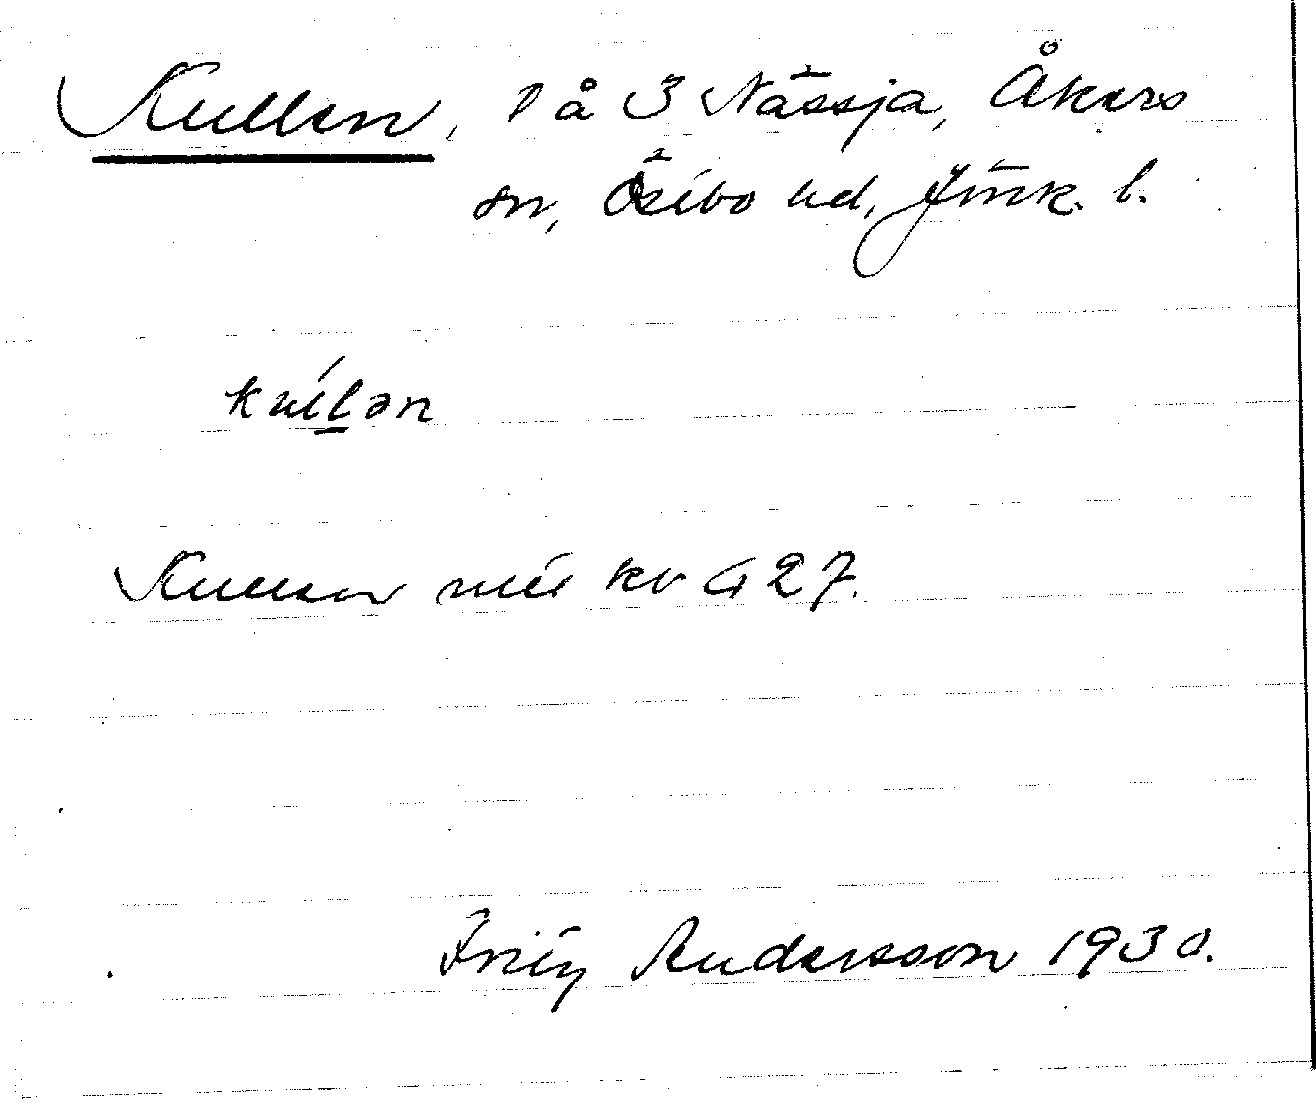 Kullen, l å 3 Nässja, Åkers
sn, Östbo hd, Jönk. l.
kulən
Kullen mtl kr 427.
Fritz Andersson 1930.